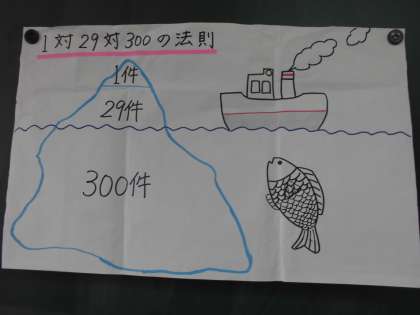 1対29対300の法則
1件
29件
300件